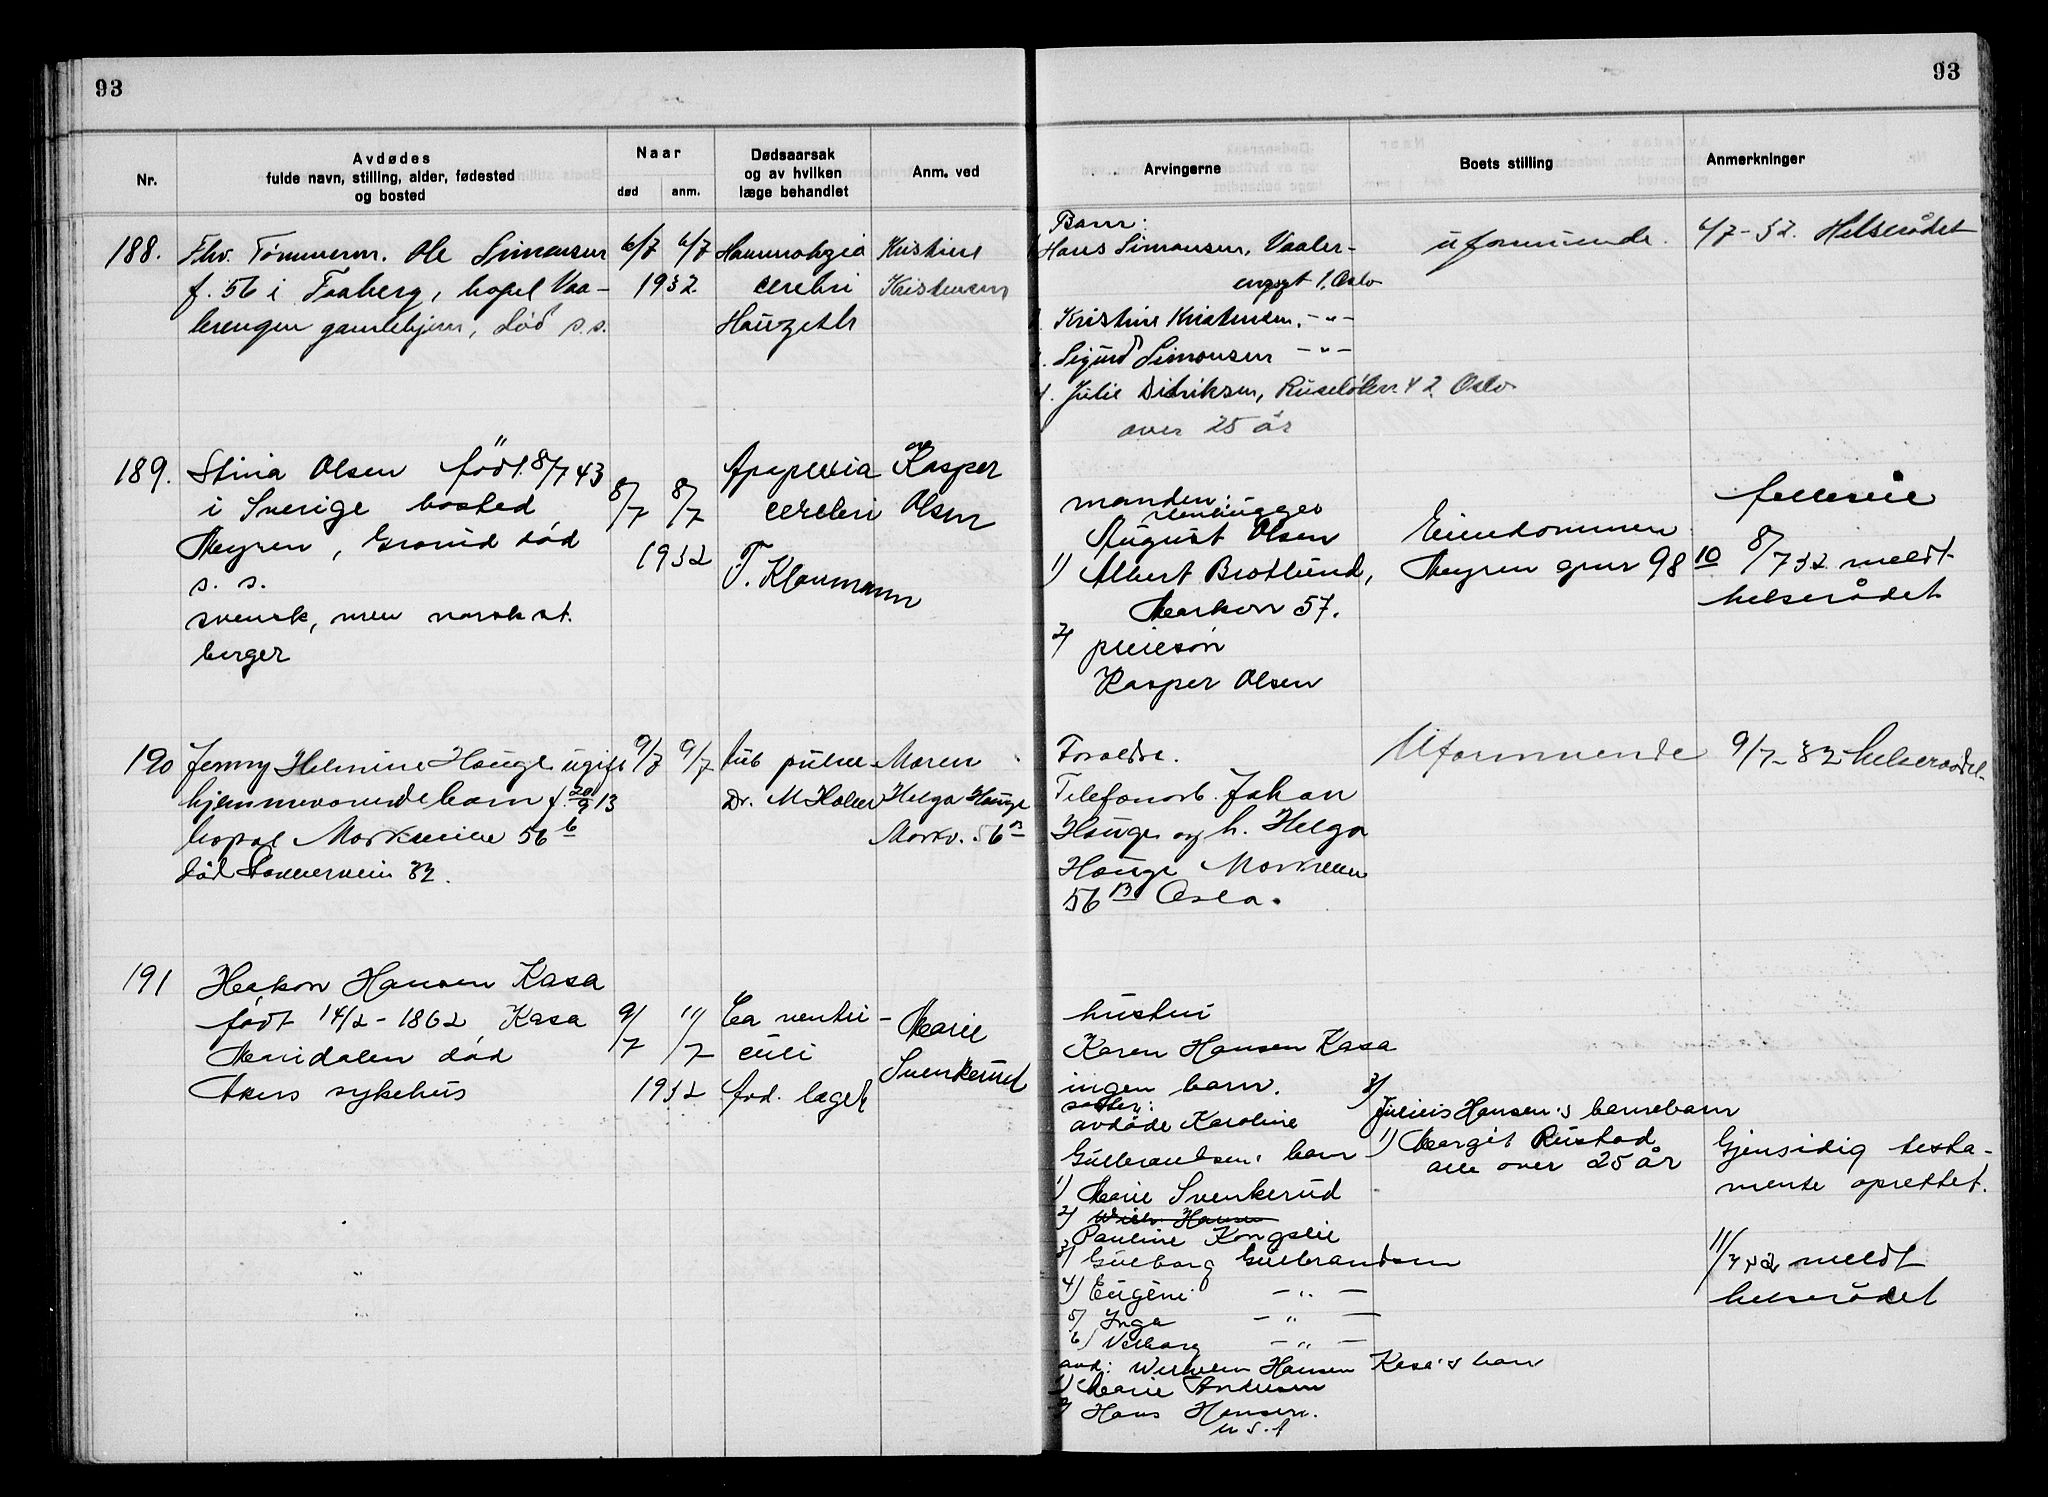 93
93
Nr.
Avdødes
fulde navn, stilling, alder, fødested
og bosted
Naar
død
anm.
Dødsaarsak
og av hvilken
læge behandlet
Anm. ved
Arvingerne
Boets stilling
Anmerkninger
188.
Fhv. Tømmerm. Ole Simonsen
f. 56 i Faaberg, bopel Vaa-
lerengen gamlehjem, død s.s.
6/7 6/7
1932
cerebri
Kristine
Kristensen
Barn:
Hans Simonsen, Vaaler-
engegt 1. Oslo
Kristine Kristensen, -"-
Sigurd Simonsen -"-
4. Julie Didriksen, 42 Oslo
over 25 år
uformuende.
6/7-32. Helserådet
189.
Stina Olsen født 8/7 43
i Sverige bosted
Myren, Grorud død
s. s.
svensk, men norsk st.
borger
8/7 8/7
1932
Apoplexia
cerebri
F. Klaumann
Kasper
Olsen
manden:
stenhugger
August Olsen
1) Albert Brotlund,
Markvn 57.
2) pleiesøn
Kasper Olsen
Eiendommen
Myren gnr 98 10
felleseie
8/7 32 meldt
helserådet
190
Jenny Helmine Hauge ugift
hjemmeværende barn f. 20/9 13
bopæl Markveien 56 b
død 32.
9/7 9/7
Tub pulm
Dr. M Holm
Moren
Helga Hauge
Markv. 56 B
Foreldre.
Telefonarb. Johan
Hauge og h. Helga
Hauge Markveien
56 B Oslo.
Uformuende
9/7-32 helseraadet
191
Haakon Hansen Kasa
født 14/2-1862 Kasa
Maridalen død
Akers sykehus
9/7 11/7
1932
Ca ventri-
culi
Avd. læge
Marie
Svenkerud
hustru
Karen Hansen Kasa
ingen barn.
søster:
avdøde Karoline
Gulbrandsens barn
1) Marie Svenkerud
2) Wilh. Hansen
Pauline Kongslie
3) Gulborg Gulbrandsen
4) Eugene -"-
5) Inga -"-
6) Valborg -"-
avd: Wilhelm Hansen Kasa's barn
1) Marie Andersen
2) Hans Hansen.
U S. A
3) Julius Hansen's barnebarn
1) Margit Rustad
alle over 25 år
Gjensidig testa-
mente oprettet.
11/7 32 meldt
helserådet